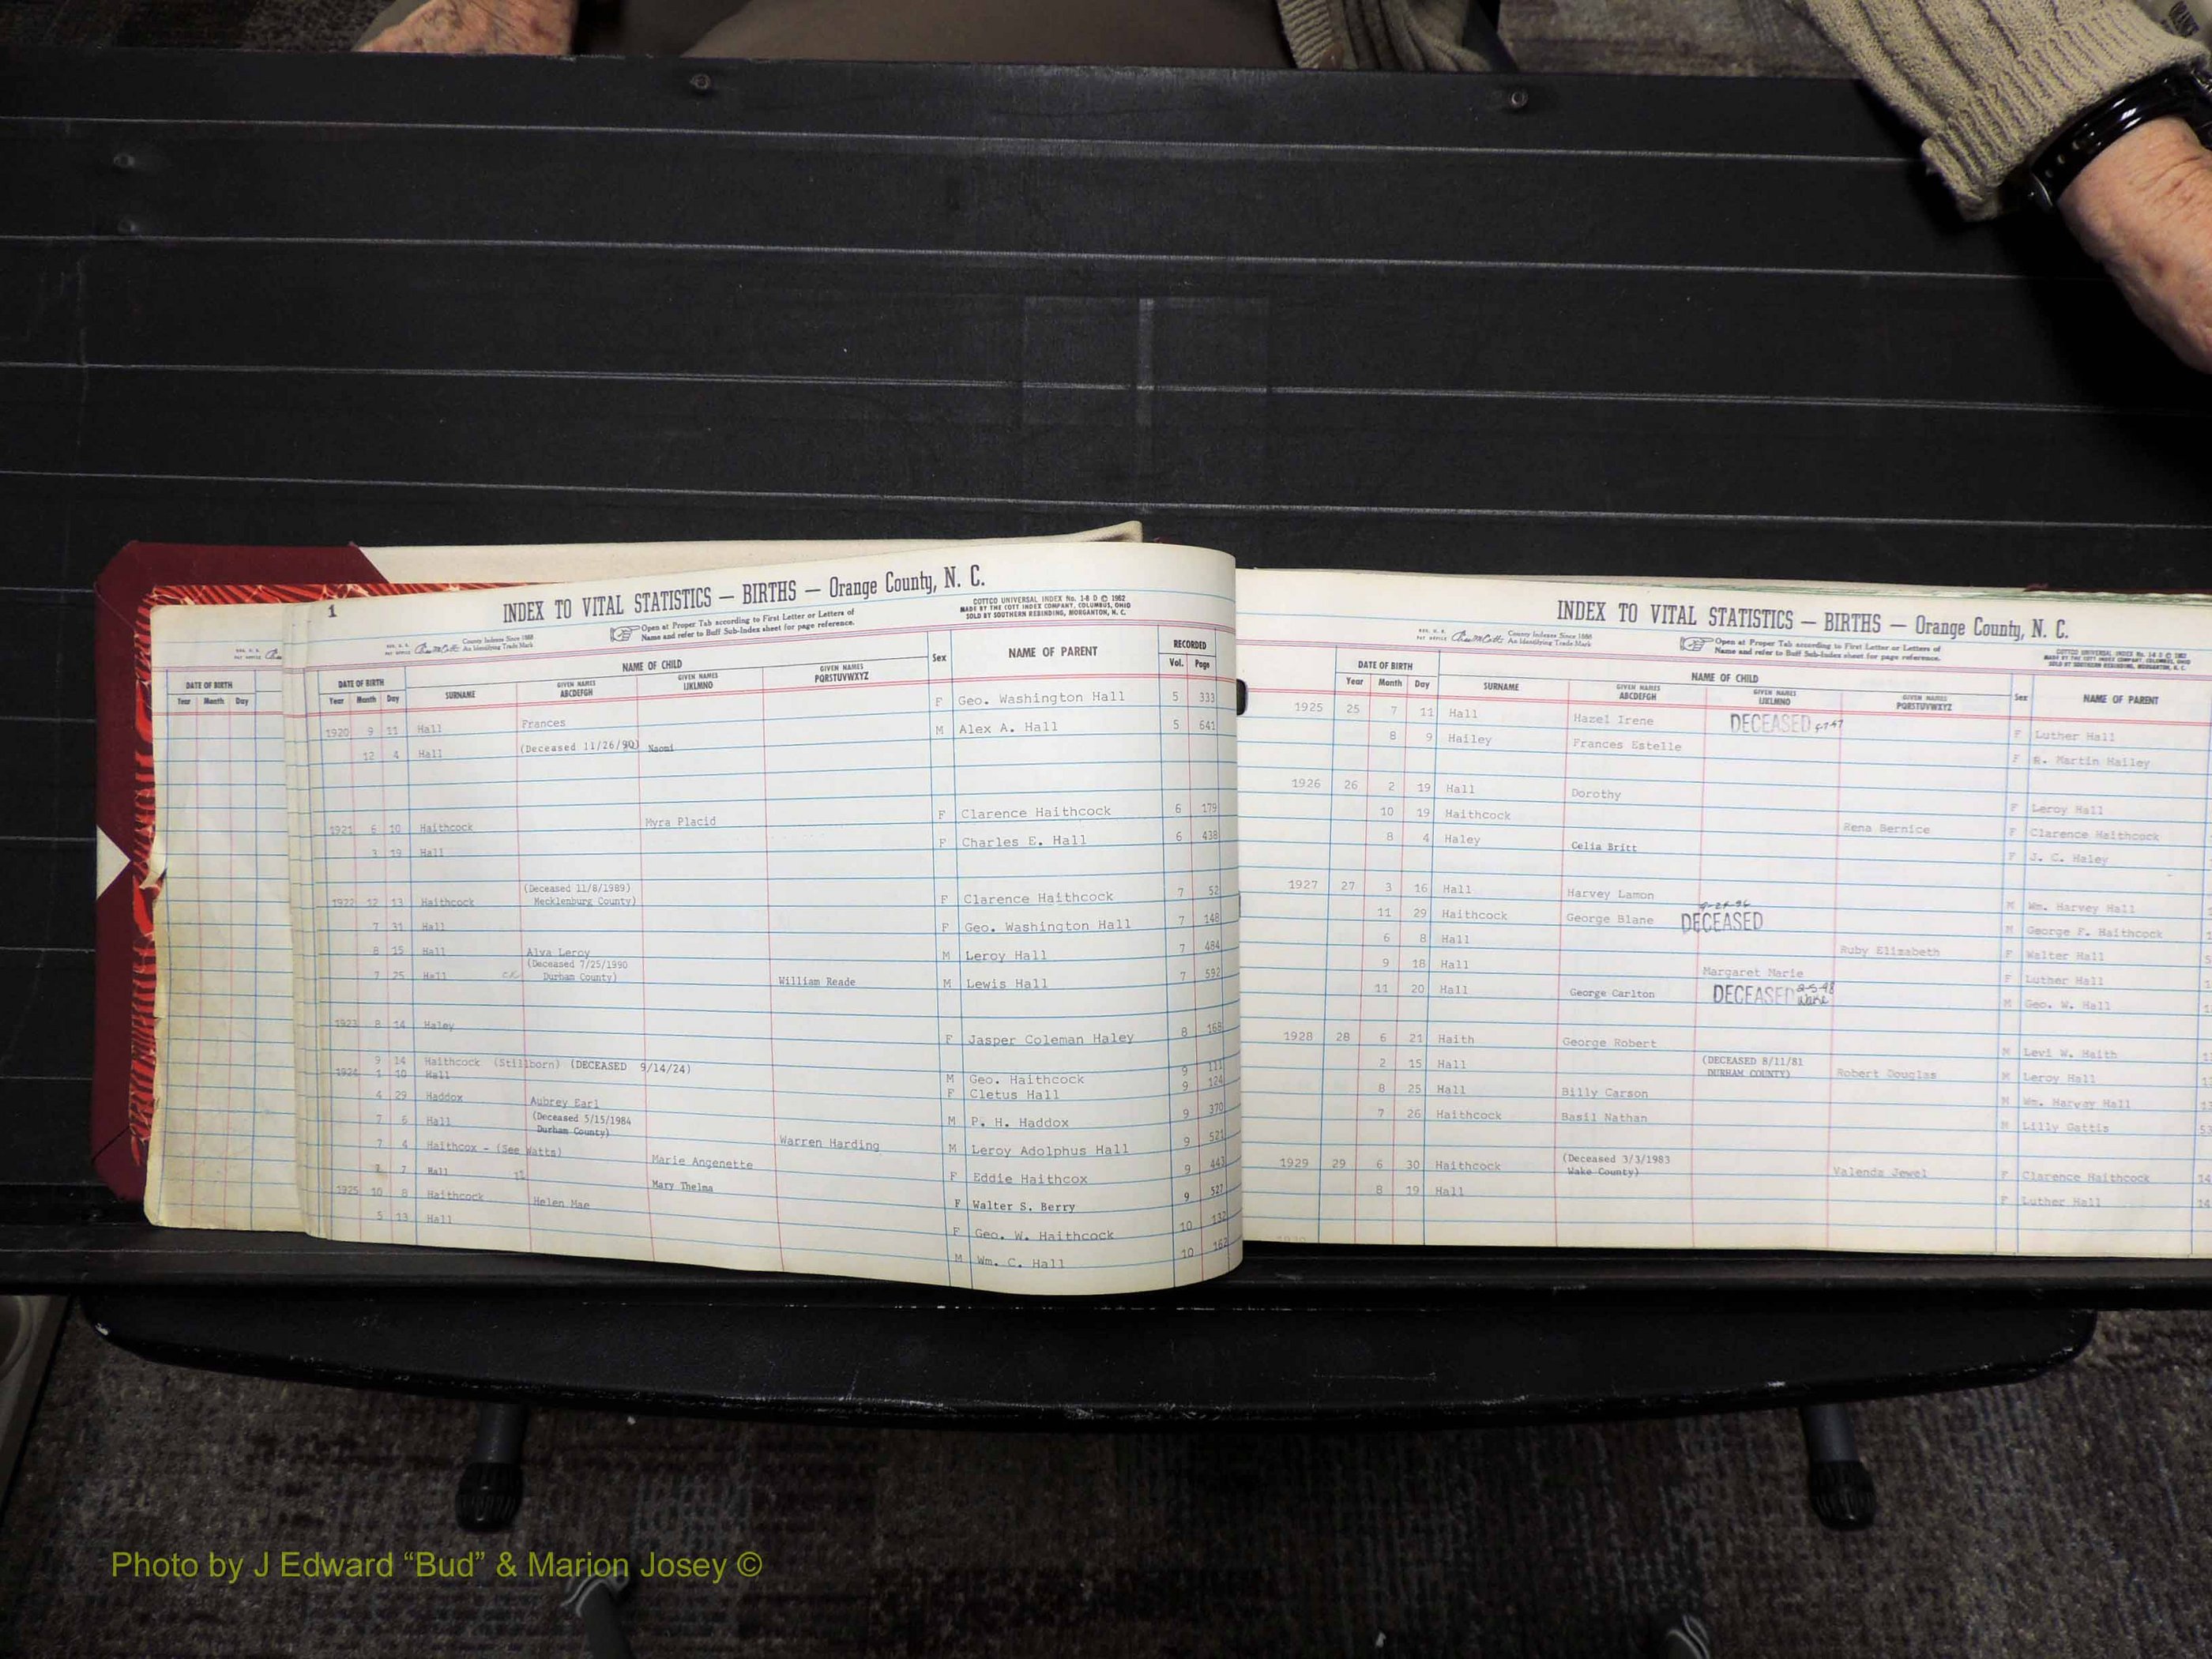 DATE OF BIRTH
Year Month Day
1
INDEX TO VITAL STATISTICS — BIRTHS — Orange County, N. C.
County Indexes Since 1888
An Identifying Trade Mark
Open at Proper Tab according to First Letter or Letters of
Name and refer to Buff Sub-Index sheet for page reference.
COTTCO UNIVERSAL INDEX No. 1-8 D © 1962
MADE BY THE COTT INDEX COMPANY, COLUMBUS, OHIO
SOLD BY SOUTHERN REBINDING, MORGANTON, N. C.
DATE OF BIRTH NAME OF CHILD Sex NAME OF PARENT RECORDED
Year Month Day SURNAME GIVEN NAMES ABCDEFGH GIVEN NAMES IJKLMNO GIVEN NAMES PQRSTUVWXYZ Vol. Page
1920 9 11 Hall Frances F Geo. Washington Hall 5 333
12 4 Hall (Deceased 11/26/90) Naomi M Alex A. Hall 5 641
1921 6 10 Haithcock Myra Placid F Clarence Haithcock 6 179
3 19 Hall F Charles E. Hall 6 438
(Deceased 11/8/1989)
1922 12 13 Haithcock Mecklenburg County) F Clarence Haithcock 7 52
7 31 Hall F Geo. Washington Hall 7 148
8 15 Hall Alva Leroy M Leroy Hall 7 484
(Deceased 7/25/1990
7 25 Hall Durham County) William Reade M Lewis Hall 7 592
1923 8 14 Haley F Jasper Coleman Haley 8 168
9 14 Haithcock (Stillborn) (DECEASED 9/14/24) M Geo. Haithcock 9 111
1924 1 10 Hall F Cletus Hall 9 124
4 29 Haddox Aubrey Earl M P. H. Haddox 9 370
7 6 Hall (Deceased 5/15/1984
Durham County) Warren Harding M Leroy Adolphus Hall 9 521
7 4 Haithcox - (See Watts) Marie Angenette F Eddie Haithcox 9 443
7 Hall Mary Thelma F Walter S. Berry 9 527
1925 10 8 Haithcock Helen Mae F Geo. W. Haithcock 10 132
5 13 Hall M Wm. C. Hall 10 162
INDEX TO VITAL STATISTICS — BIRTHS — Orange County, N. C.
County Indexes Since 1888
An Identifying Trade Mark
Open at Proper Tab according to First Letter or Letters of
Name and refer to Buff Sub-Index sheet for page reference.
COTTCO UNIVERSAL INDEX No. 1-8 D © 1962
MADE BY THE COTT INDEX COMPANY, COLUMBUS, OHIO
SOLD BY SOUTHERN REBINDING, MORGANTON, N. C.
DATE OF BIRTH NAME OF CHILD Sex NAME OF PARENT
Year Month Day SURNAME GIVEN NAMES ABCDEFGH GIVEN NAMES IJKLMNO GIVEN NAMES PQRSTUVWXYZ
1925 25 7 11 Hall Hazel Irene DECEASED F Luther Hall
8 9 Hailey Frances Estelle F R. Martin Hailey
1926 26 2 19 Hall Dorothy F Leroy Hall
10 19 Haithcock Rena Bernice F Clarence Haithcock
8 4 Haley Celia Britt F J. C. Haley
1927 27 3 16 Hall Harvey Lamon M Wm. Harvey Hall
11 29 Haithcock George Blane DECEASED M George F. Haithcock
6 8 Hall Ruby Elizabeth F Walter Hall
9 18 Hall Margaret Marie F Luther Hall
11 20 Hall George Carlton DECEASED 2-5-98 Wake M Geo. W. Hall
1928 28 6 21 Haith George Robert M Levi W. Haith
2 15 Hall (DECEASED 8/11/81
DURHAM COUNTY) Robert Douglas M Leroy Hall
8 25 Hall Billy Carson M Wm. Harvey Hall
7 26 Haithcock Basil Nathan M Lilly Gattis
1929 29 6 30 Haithcock (Deceased 3/3/1983
Wake County) Valenda Jewel F Clarence Haithcock
8 19 Hall F Luther Hall
Photo by J Edward “Bud” & Marion Josey ©